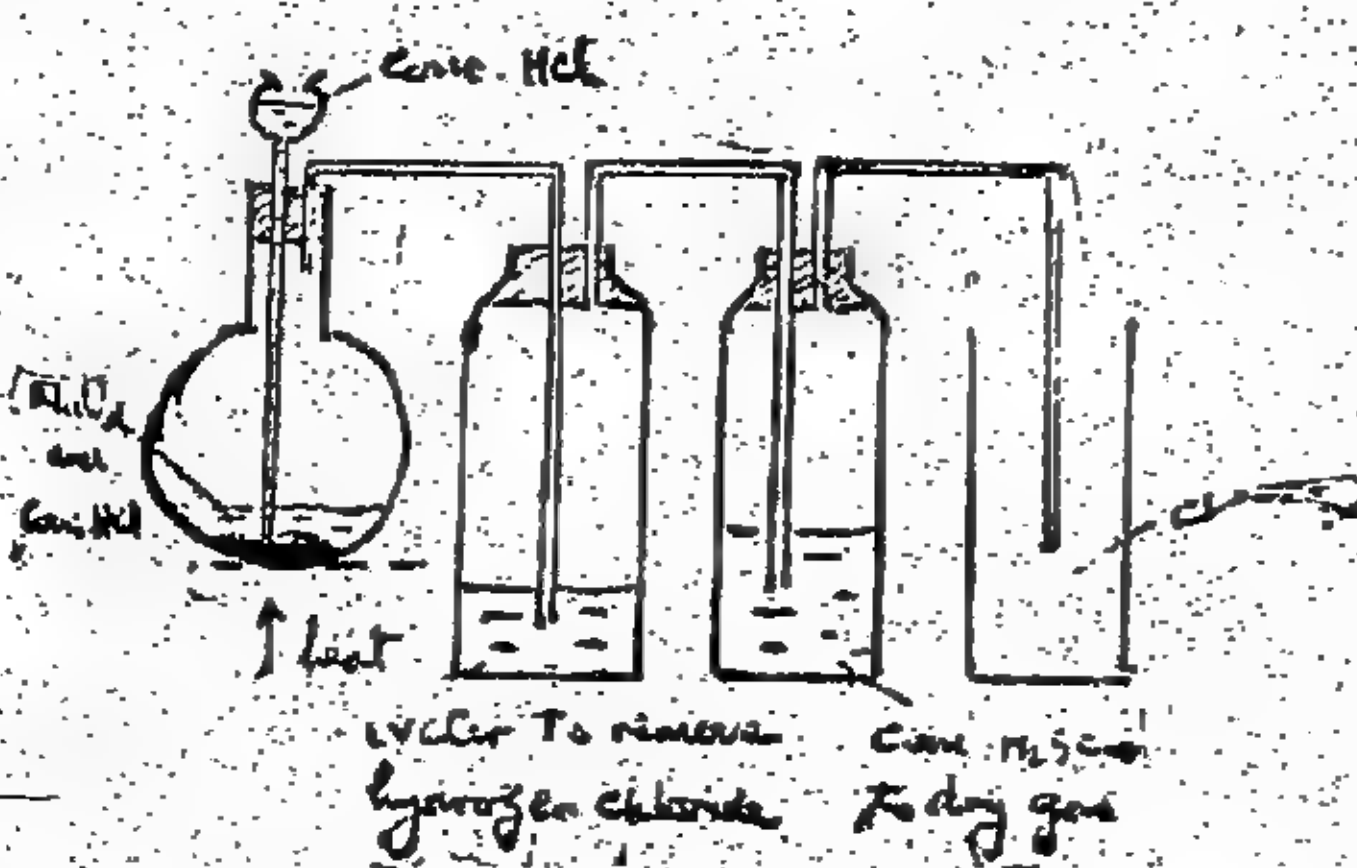 Conc. HCl
and
Conc. HCl
heat
Water To remove
hydrogen chloride
Conc. H2SO4
to dry gas
Cl